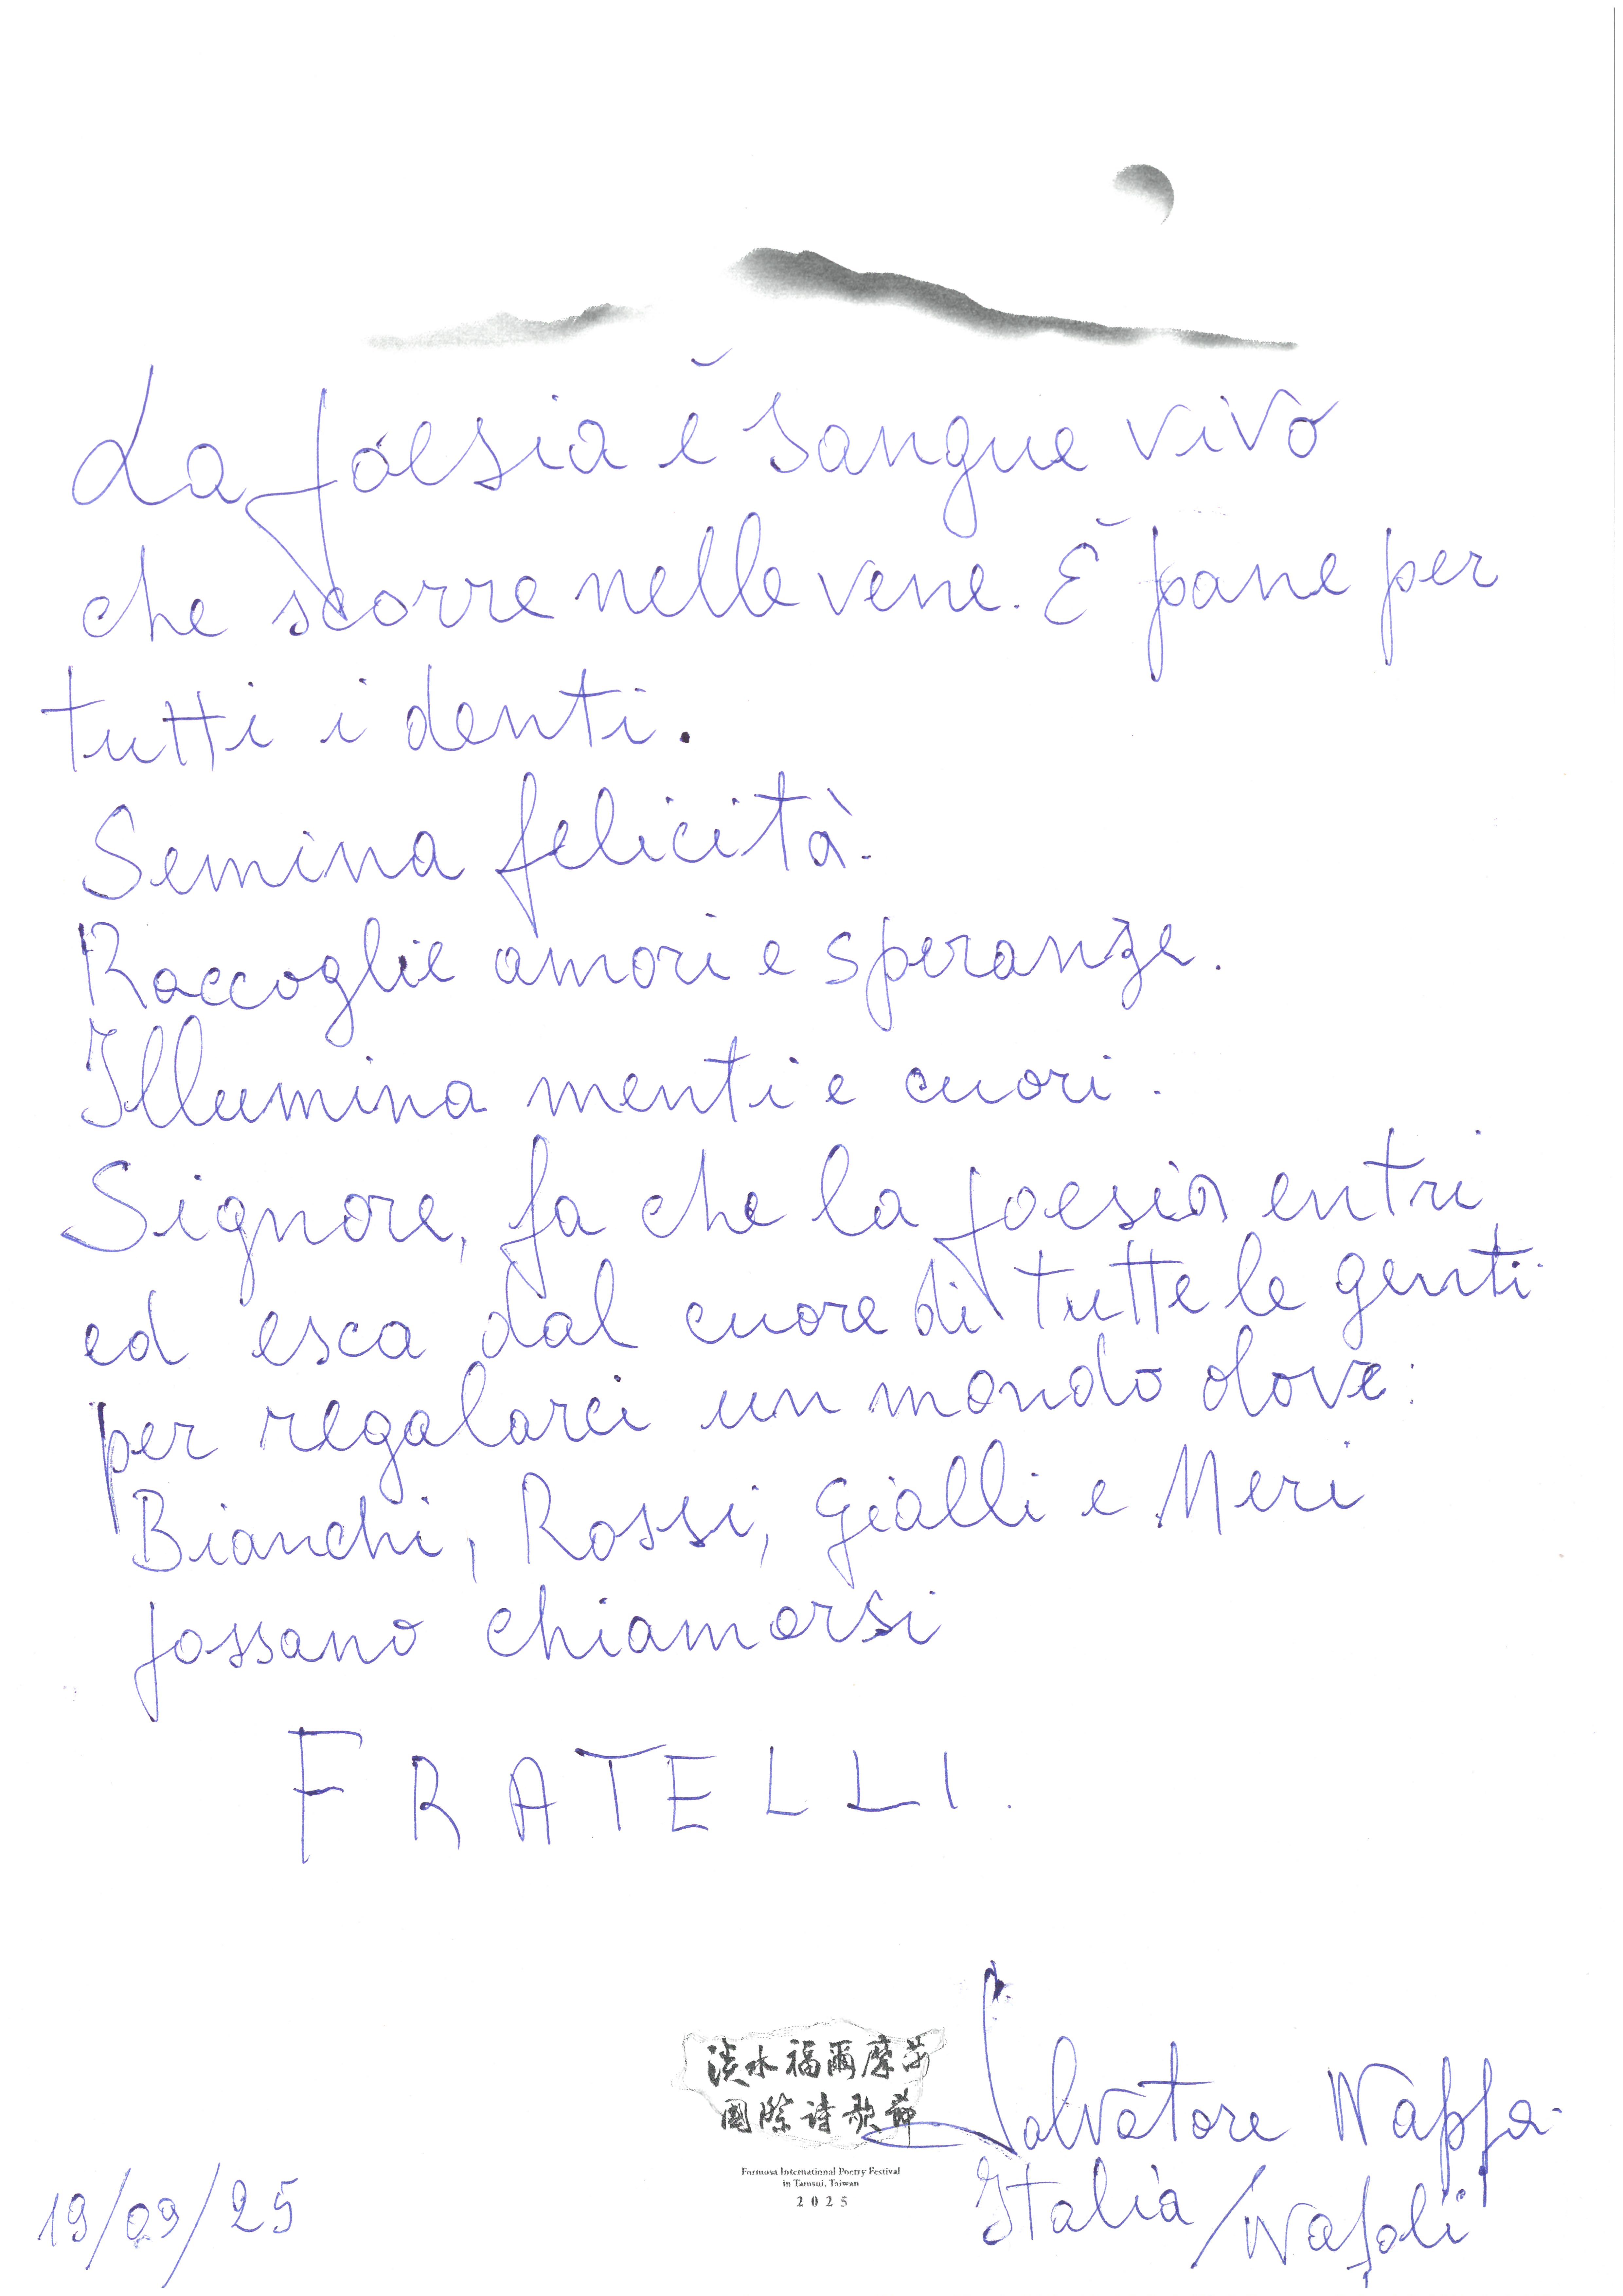 La poesia è sangue vivo
che scorre nelle vene. È pane per
tutti i denti.
Semina felicità.
Raccoglie amori e speranze.
Illumina menti e cuori.
Signore, fa che la poesia entri
ed esca dal cuore di tutte le genti
per regalarci un mondo dove:
Bianchi, Rossi, Gialli e Neri
possano chiamarsi
FRATELLI.
淡水福爾摩莎
國際詩歌節
Formosa International Poetry Festival
in Tamsui, Taiwan
2025
Salvatore Nappa.
Italia/Napoli
19/09/25